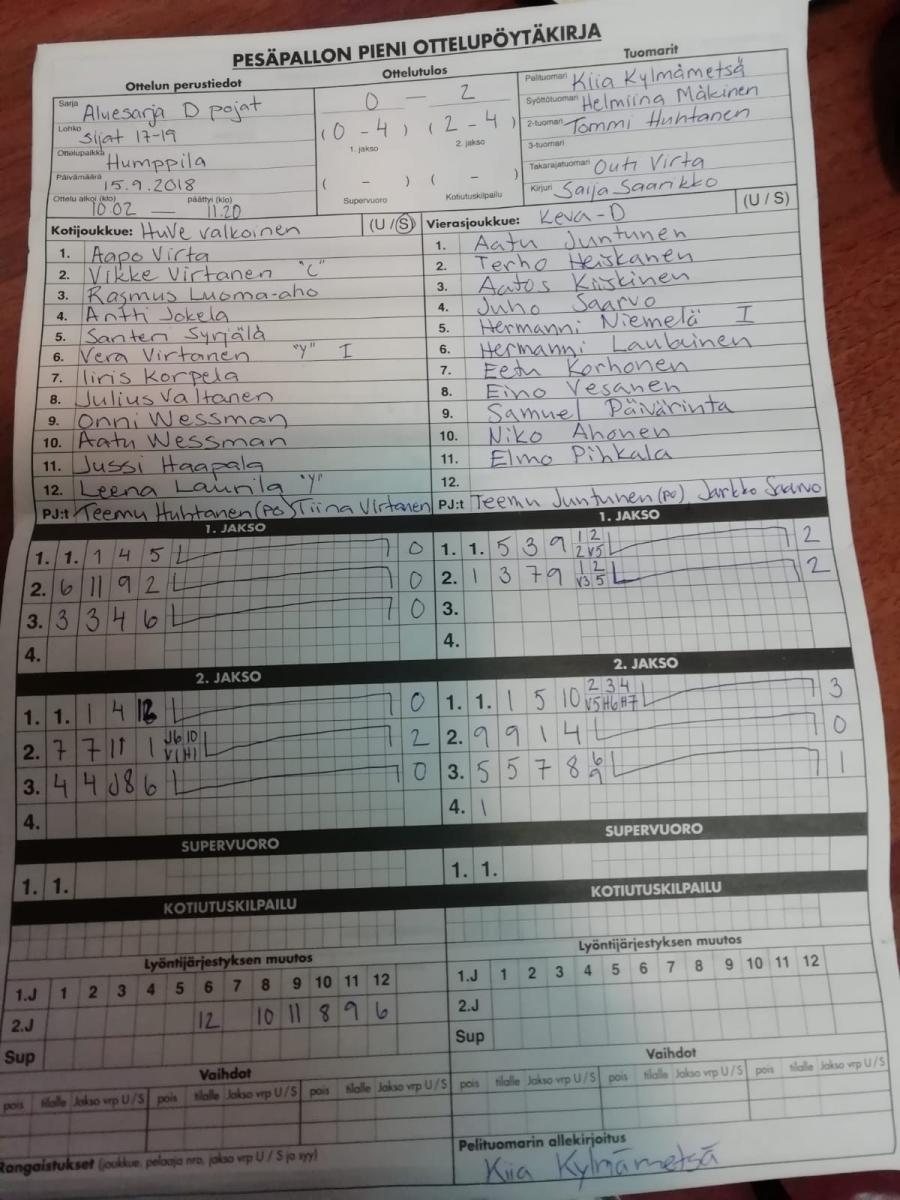 PESÄPALLON PIENI OTTELUPÖYTÄKIRJA
Ottelun perustiedot
Sarja Aluesarja D pojat
Lohko Sijat 17-19
Ottelupaikka Humppila
Päivämäärä 15.9.2018
Ottelu alkoi (klo) 10.02 — päättyi (klo) 11.20
Ottelutulos
0 – 2
(0 - 4) (2 - 4)
1. jakso 2. jakso
( - ) ( - )
Supervuoro Kotiutuskilpailu
Tuomarit
Pelituomari Kiia Kylmämetsä
Syöttötuomari Helmiina Mäkinen
2-tuomari Tommi Huhtanen
3-tuomari
Takarajatuomari Outi Virta
Kirjuri Saija Saarikko
Kotijoukkue: HuVe valkoinen (U / S)
1. Aapo Virta
2. Vikke Virtanen "C"
3. Rasmus Luoma-aho
4. Antti Jokela
5. Santeri Syrjälä
6. Vera Virtanen "Y" I
7. Iiris Korpela
8. Julius Valtanen
9. Onni Wessman
10. Aatu Wessman
11. Jussi Haapala
12. Leena Laurila "Y"
PJ:t Teemu Huhtanen (PO) Tiina Virtanen
Vierasjoukkue: Keva-D (U / S)
1. Aatu Juntunen
2. Terho Heiskanen
3. Aatos Kiiskinen
4. Juho Saarvo
5. Hermanni Niemelä I
6. Hermanni Laubainen
7. Eetu Korhonen
8. Eino Vesanen
9. Samuel Päivärinta
10. Niko Ahonen
11. Elmo Pihkala
12.
PJ:t Teemu Juntunen (PO), Jarkko Saarvo
1. JAKSO
1. 1. 1 4 5 0
2. 6 11 9 2 0
3. 3 3 4 6 0
4.
1. JAKSO
1. 1. 5 3 9 1 2 2 V5 2
2. 1 3 7 9 1 2 V3 5 2
3.
4.
2. JAKSO
1. 1. 1 4 12 0
2. 7 7 11 1 J6 10 V1 H1 2
3. 4 4 J8 6 0
4.
2. JAKSO
1. 1. 1 5 10 2 3 4 V5 H6 H7 3
2. 9 9 1 4 0
3. 5 5 7 8 6 9 1
4. 1
SUPERVUORO
1. 1.
SUPERVUORO
1. 1.
KOTIUTUSKILPAILU
KOTIUTUSKILPAILU
Lyöntijärjestyksen muutos
1.J 1 2 3 4 5 6 7 8 9 10 11 12
2.J 12 10 11 8 9 6
Sup
Lyöntijärjestyksen muutos
1.J 1 2 3 4 5 6 7 8 9 10 11 12
2.J
Sup
Vaihdot
pois tilalle Jakso vrp U / S pois tilalle Jakso vrp U / S pois tilalle Jakso vrp U / S
Vaihdot
pois tilalle Jakso vrp U / S pois tilalle Jakso vrp U / S pois tilalle Jakso vrp U / S
Rangaistukset (joukkue, pelaaja nro, jakso vrp U / S ja syy)
Pelituomarin allekirjoitus
Kiia Kylmämetsä